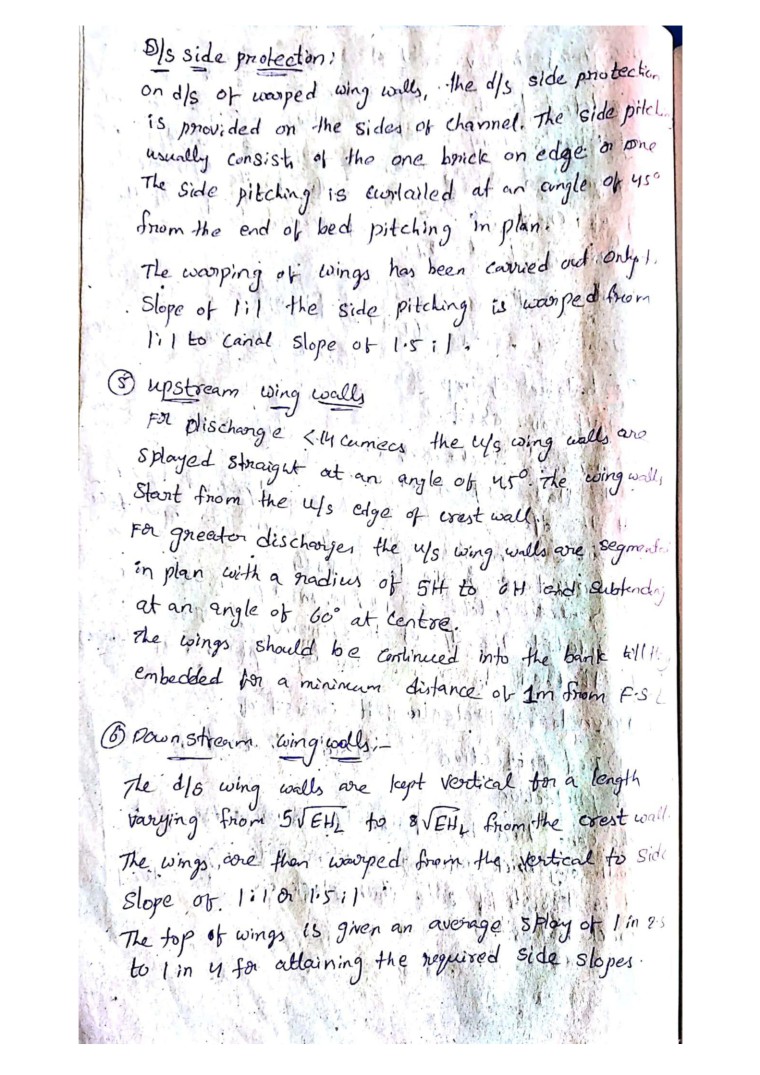 D/s side protection:
on d/s of warped wing walls, the d/s side protection
is provided on the sides of channel. The side pitch
usually consist of the one brick on edge or one
The side pitching is curtailed at an angle of 45°
from the end of bed pitching in plan.
The warping of wings has been carried out only
Slope of 1:1 the side pitching is warped from
1:1 to canal slope of 1.5:1.
⑤ upstream wing walls
For discharge <14 cumecs the u/s wing walls are
splayed straight at an angle of 45°. The wing walls
Start from the u/s edge of crest wall.
For greator discharges the u/s wing walls are segment
in plan with a radius of 5H to 6H and subtending
at an angle of 60° at centre.
The wings should be continued into the bank till
embedded for a minimum distance of 1m from F.S L
⑥ Down stream wing walls:-
The d/s wing walls are kept vertical for a length
varying from 5√EHL to 8√EHL from the crest wall.
The wings are then warped from the vertical to side
Slope of 1:1 or 1.5:1
The top of wings is given an average splay of 1 in 2.5
to 1 in 4 for attaining the required side slopes.